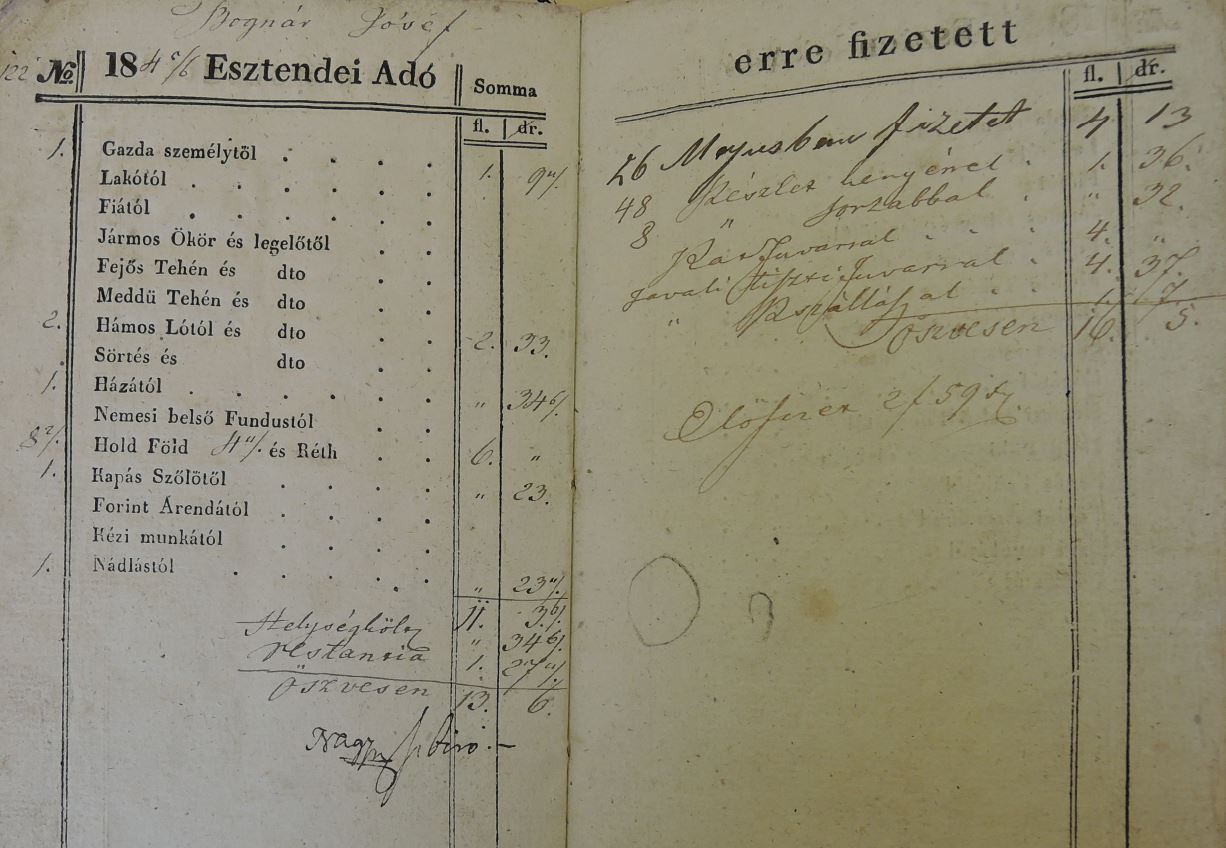 Bognár Jósef
122 No. 184 5/6 Esztendei Adó Somma
fl. dr.
1. Gazda személytől . . . . 1. 9
Lakótól . . . . .
Fiától . . . . .
Jármos Ökör és legelőtől . .
Fejős Tehén és dto . .
Meddü Tehén és dto . .
2. Hámos Lótól és dto . . 2. 33.
Sörtés és dto . .
1. Házától . . . . . „ 34 6/.
Nemesi belső Fundustól . .
8 2/. Hold Föld 4 és Réth . . 6. „
1. Kapás Szőlőtől . . . . „ 23.
Forint Árendától . . . .
Kézi munkától . . . .
1. Nádlástól . . . . . „ 23
11. 3 6/.
Helységkölts „ 34 6/.
restantia 1. 27
Öszvesen 13. 6.
Nagy biró
erre fizetett
fl. dr.
26 Mayusban fizetet 4 13
48 Részlet kenyérrel . 1. 36.
8 „ forzabbal . „ 32.
fuvarral . . . 4. „
tiszti fuvarral . 4. 37.
„ . . 1. 7.
Öszvesen 16. 5.
Előfizet 2 f 59